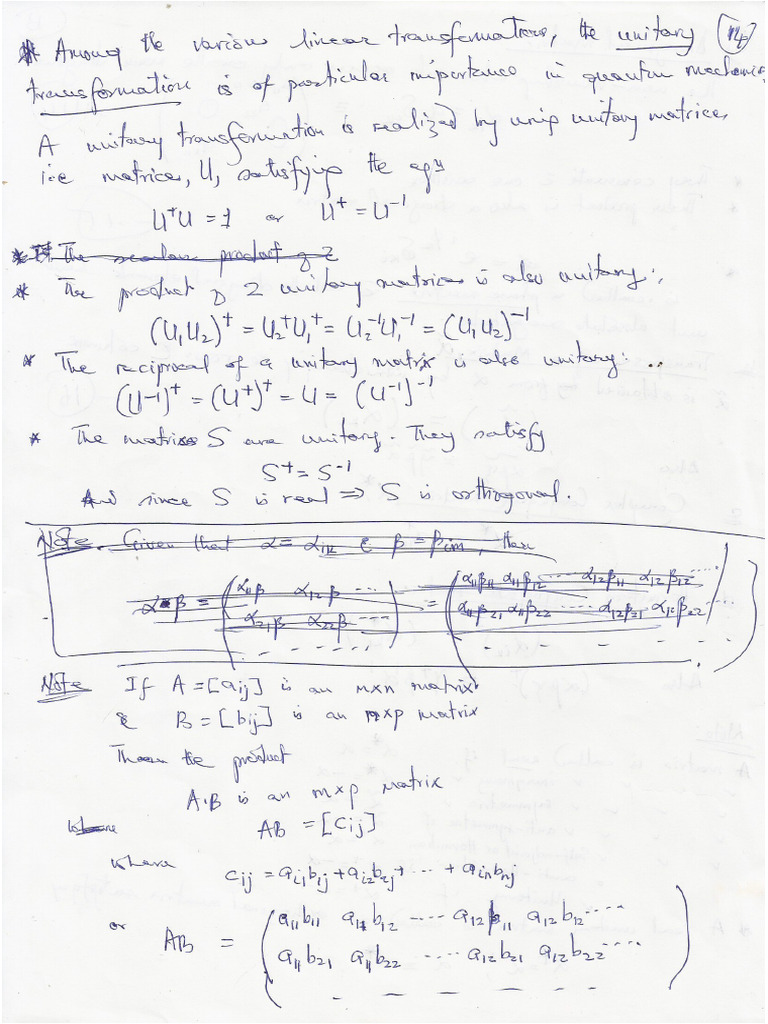 * Among the various linear transformations, the unitary
transformation is of particular importance in quantum mechanics
A unitary transformation is realized by unip unitary matrices
i.e matrices, U, satisfying the eqn
U⁺U = 1 or U⁺ = U⁻¹
* The scalar product of 2
* The product of 2 unitary matrices is also unitary:
(U₁U₂)⁺ = U₂⁺U₁⁺ = U₂⁻¹U₁⁻¹ = (U₁U₂)⁻¹
* The reciprocal of a unitary matrix is also unitary: ..
(U⁻¹)⁺ = (U⁺)⁺ = U = (U⁻¹)⁻¹
* The matrices S are unitary. They satisfy
S⁺ = S⁻¹
And since S is real ⇒ S is orthogonal.
Note. Given that α = αᵢₖ & β = βₗₘ, then
α β = (α₁₁β α₁₂β ... = (α₁₁β₁₁ α₁₁β₁₂ ... α₁₂β₁₁ α₁₂β₁₂ ...
α₂₁β α₂₂β ... α₁₁β₂₁ α₁₁β₂₂ ... α₁₂β₂₁ α₁₂β₂₂ ...
Note If A = [aij] is an m×n matrix
& B = [bij] is an n×p matrix
Then the product
A·B is an m×p matrix
where AB = [cij]
where cij = ai1b1j + ai2b2j + ... + ainbnj
or AB = (a₁₁b₁₁ a₁₁b₁₂ ---- a₁₂b₁₁ a₁₂b₁₂ ----
a₁₁b₂₁ a₁₁b₂₂ ---- a₁₂b₂₁ a₁₂b₂₂ ----
- - - - - - -)